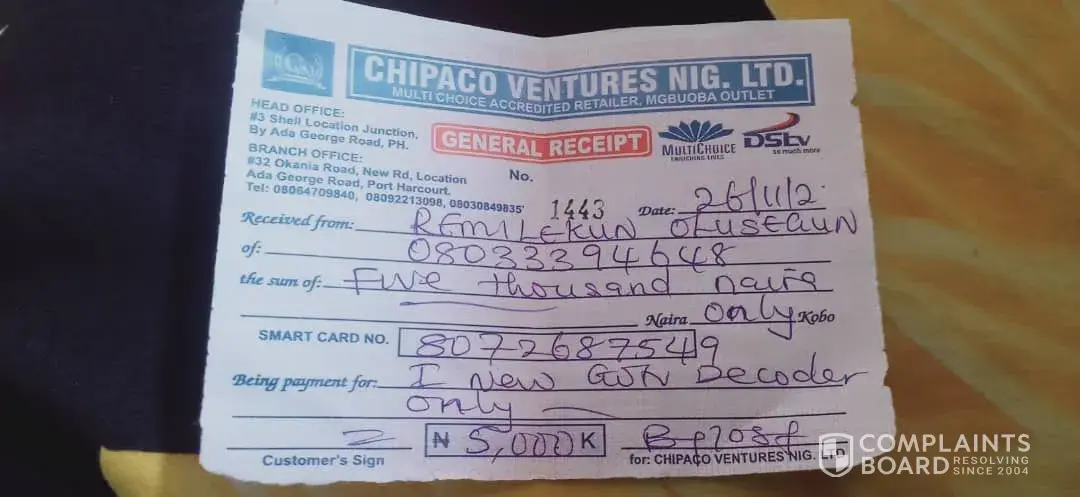 CHIPACO VENTURES NIG. LTD.
MULTI CHOICE ACCREDITED RETAILER, MGBUOBA OUTLET
HEAD OFFICE:
#3 Shell Location Junction,
By Ada George Road, PH.
BRANCH OFFICE:
#32 Okania Road, New Rd, Location
Ada George Road, Port Harcourt.
Tel: 08064709840, 08092213098, 08030849835
GENERAL RECEIPT
MULTICHOICE
ENRICHING LIVES
DStv
so much more
No. 1443
Date: 26/11/2
Received from: REMILEKUN OLUSEGUN
of: 08033394648
the sum of: Five thousand naira
Naira only Kobo
SMART CARD NO. 8072687549
Being payment for: 1 New GOtv Decoder
only
Customer's Sign
₦ 5,000 K
for: CHIPACO VENTURES NIG. LTD
COMPLAINTS
BOARD RESOLVING
SINCE 2004